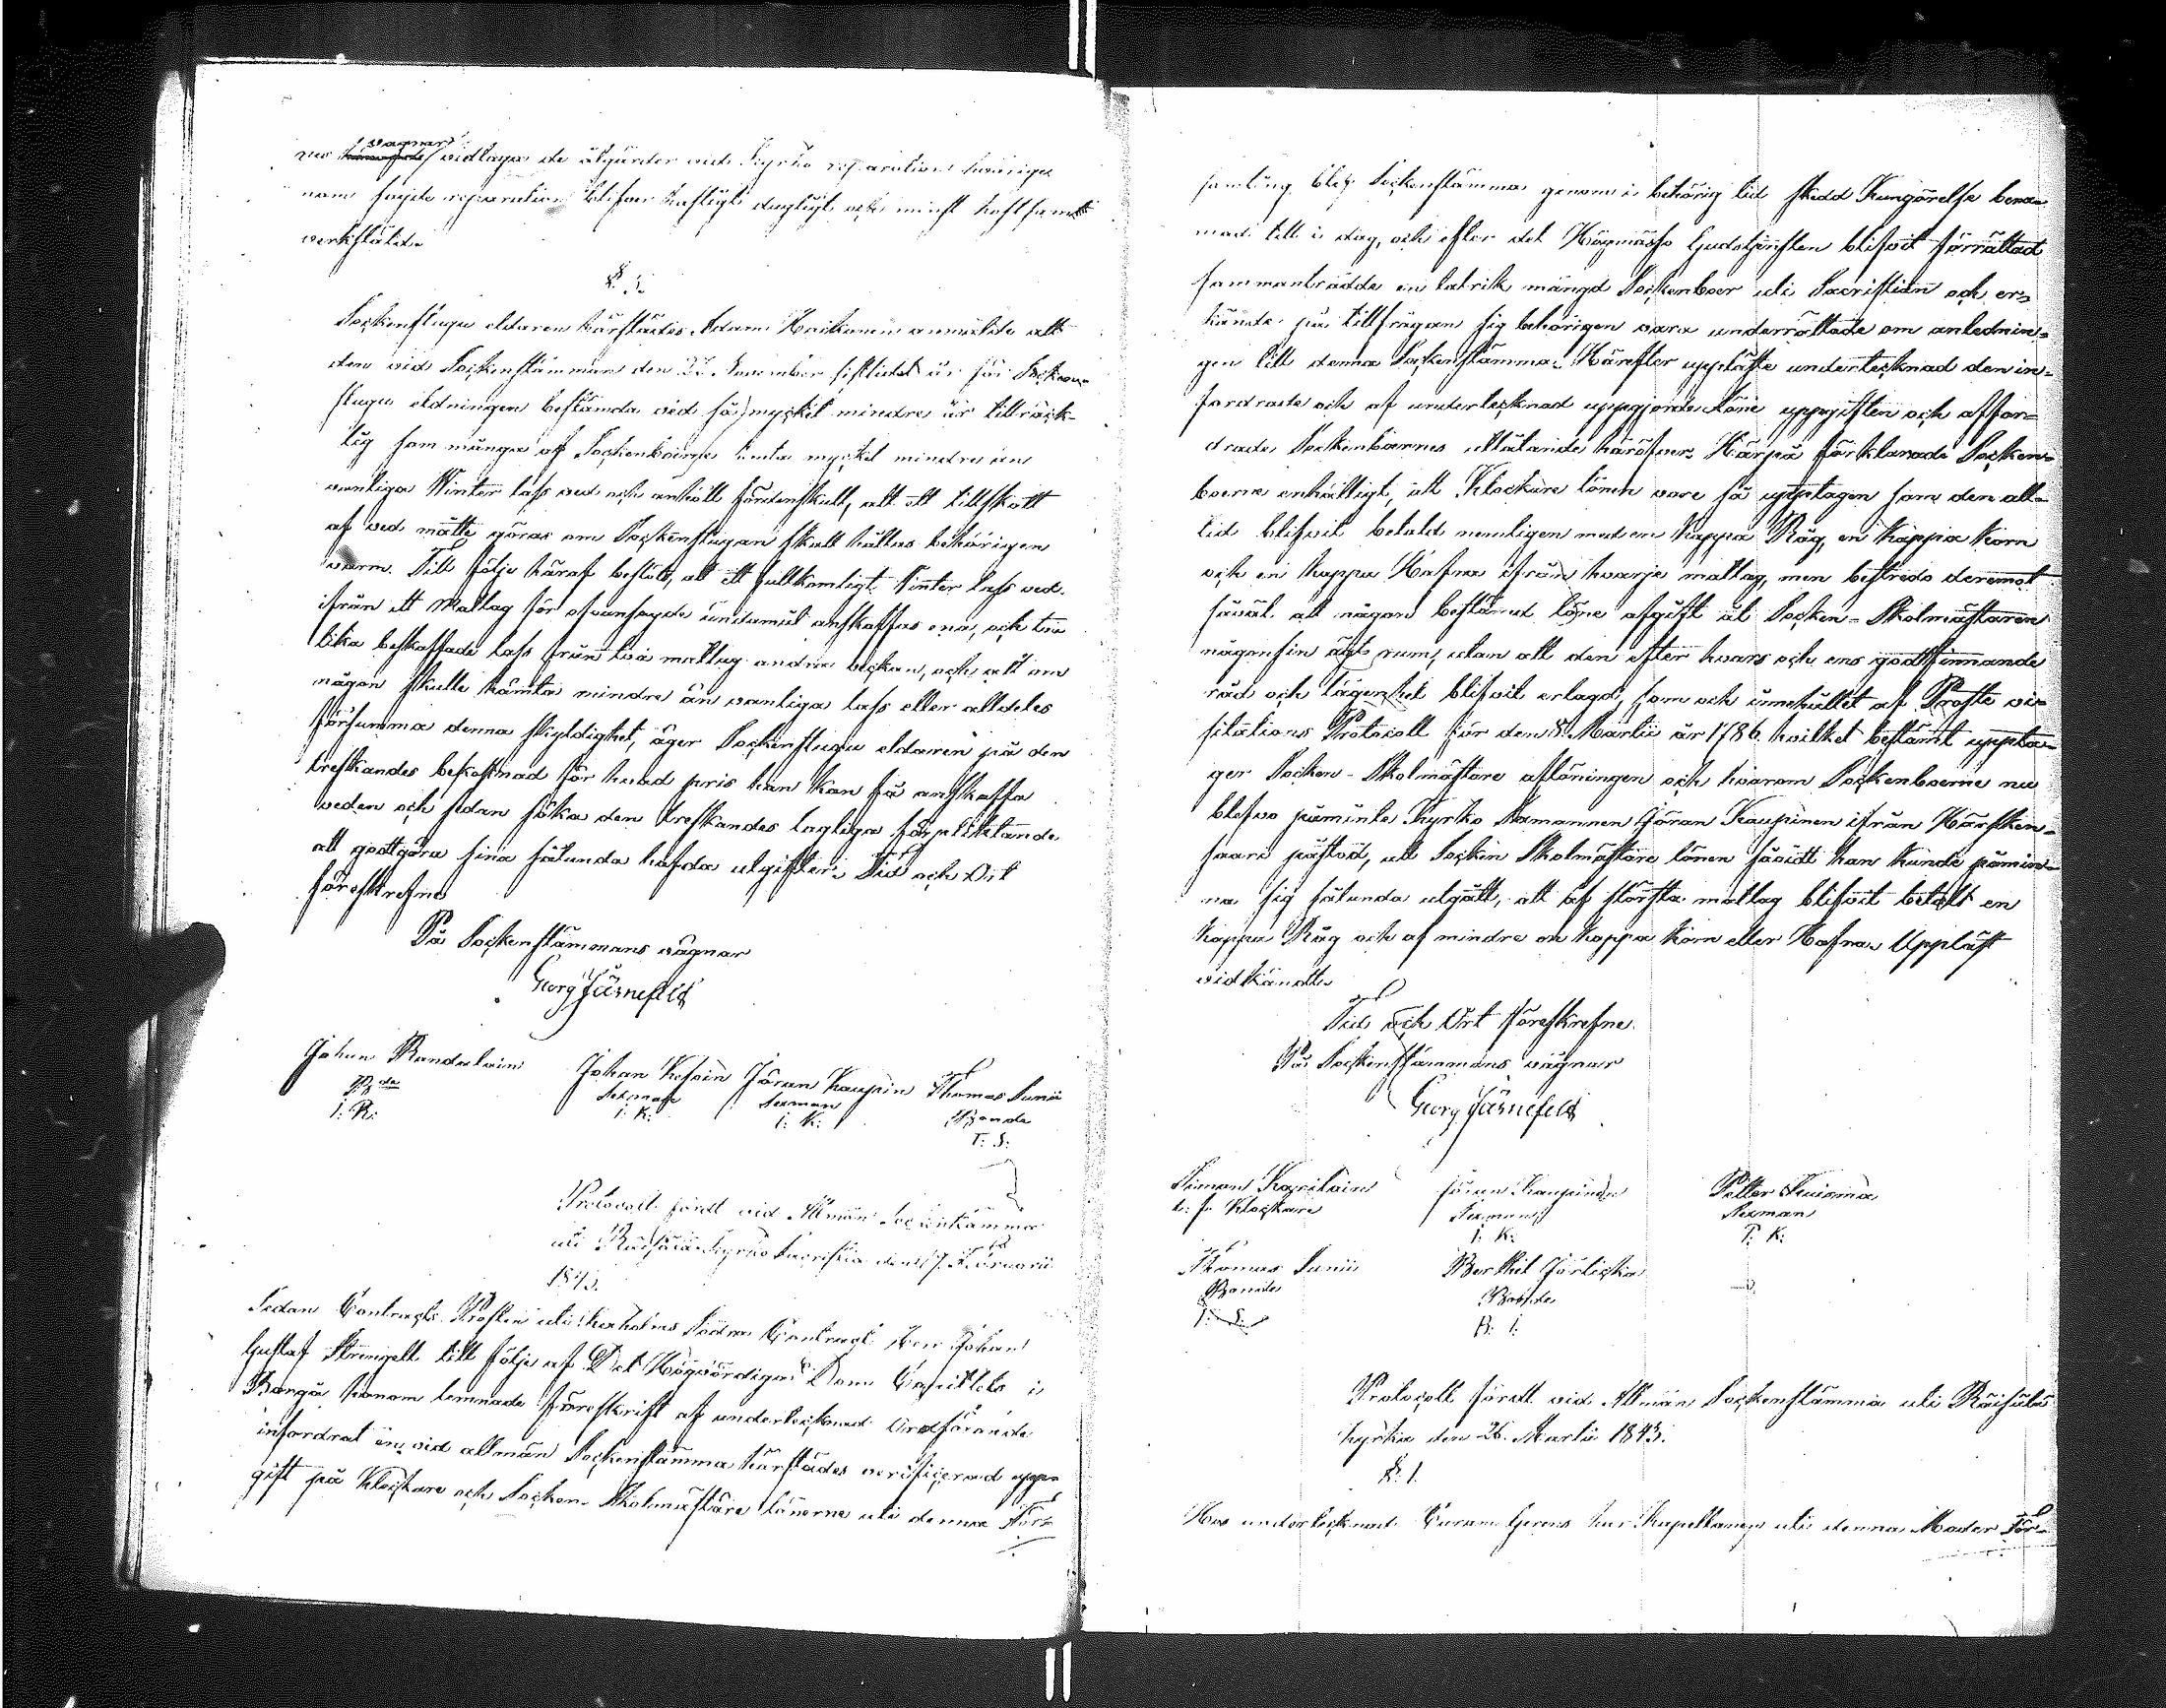 wägnar
nes vidtaga de åtgärder vid Kyrko reparation hwarige
nom sagde reparation blifver hastigt dugligt och minst kostsamt
verkstäld.
§. 3.
Sockenstugu eldaren härstädes Adam anmälte att
den vid Sockenstämman den 27 November sistledet år för Socken-
stugu eldningen bestämda ved så mycket mindre är tillräck-
lig som många af Sockenboerne hemta mycket mindre än
vanliga Winter lass ved och anhöll fördenskull, att ett tillskott
af ved måtte göras om Sockenstugan skall hållas behörigen
varm. Till följe häraf beslöts, att ett fullkomligt Vinter lass ved
ifrån ett Matlag för ofvansagde ändamål anskaffas ena, och tva
lika beskaffade lass från två matlag andra veckan, och att om
någon skulle hämta mindre än vanliga lass eller alldeles
försumma denna skyldighet, äger Sockenstugu eldaren på den
treskandes bekostnad för hvad pris han kan få anskaffa
veden och sedan söka den treskandes lagliga förpliktande
att godtgöra sina sålunda hafda utgifter. Tid och Ort
föreskrefne
På Sockenstämmans vägnar
Georg Järnefelt
Johan Randalain Johan Kesäin Göran Kaupin Thomas Sunii
Bde Sexman Sexman Bonde
I: R: I: K: I: K: T: S:
Protocoll fördt vid Allmän Sockenstämma
uti Räisälä Kyrko Sacristia den 17 Februarii
1843.
Sedan Contracts Prosten uti Kexholms Södra Contract Herr Johan
Gustaf Strengell till följe af Det Högvördiga Dom Capitlets i
Borgå honom lemnade föreskrift af undertecknad Ordförande
infordrat en vid allmän Sockenstämma härstädes verificerad uppg
gift på Klockare och Socken-Skolmästare lönerne uti denna För-
samling blef Sockenstämma genom i behörig tid skedd Kungörelse benä-
mnad till i dag, och efter det Högmässo Gudstjensten blifvit förrättad
sammanträdde en talrik mängd Sockenboer uti Sacristian och er-
kände på tillfrågan sig behörigen vara underrättade om anlednin-
gen till denna Sockenstämma. Härefter uppläste undertecknad den in-
fordrade och af undertecknad uppgjorde Löne uppgiften och affor-
drade Sockenboernes utlåtande häröfver. Härpå förklarade Socken-
boerne enhälligt, att Klockare lönen vore så upptagen som den all-
tid blifvit betald nemligen med en Kappa Råg, en Kappa Korn
och en Kappa Hafra ifrån hvarje matlag, men bestredo deremot
såväl att någon bestämd löne afgift åt Socken-Skolmästaren
någonsin ägt rum, utan att den efter hvars och ens godtfinnande
råd och lägenhet blifvit erlagd, som och innehållet af Proste vi-
sitations Protocoll för den 8 Martii år 1786 hvilket bestämt uppta-
ger Socken-Skolmästare aflöningen och hvarom Sockenboerne nu
blefvo påminte. Kyrko Sexmannen Göran Kaupinen ifrån Härsken-
saari påstod, att Socken Skolmästare lönen såvidt han kunde påmin-
na sig sålunda utgått, att af största matlag blifvit betalt en
Kappa Råg och af mindre en Kappa Korn eller Hafra. Uppläst
vidkändt.
Tid och Ort föreskrefne.
På Sockenstämmans vägnar
Georg Järnefelt
Simon Kapilain Göran Kaupinen Petter
v: p: Klockare Sexman Sexman
I: K: P: K:
Thomas Sunii Berthil
Bonde Bonde
T: S: B: I:
Protocoll fördt vid Allmän Sockenstämma uti Räisälä
Kyrka den 26. Martii 1843.
§. 1.
Hos undertecknad Curam Gerens har Kapellanen uti denna Moder För-